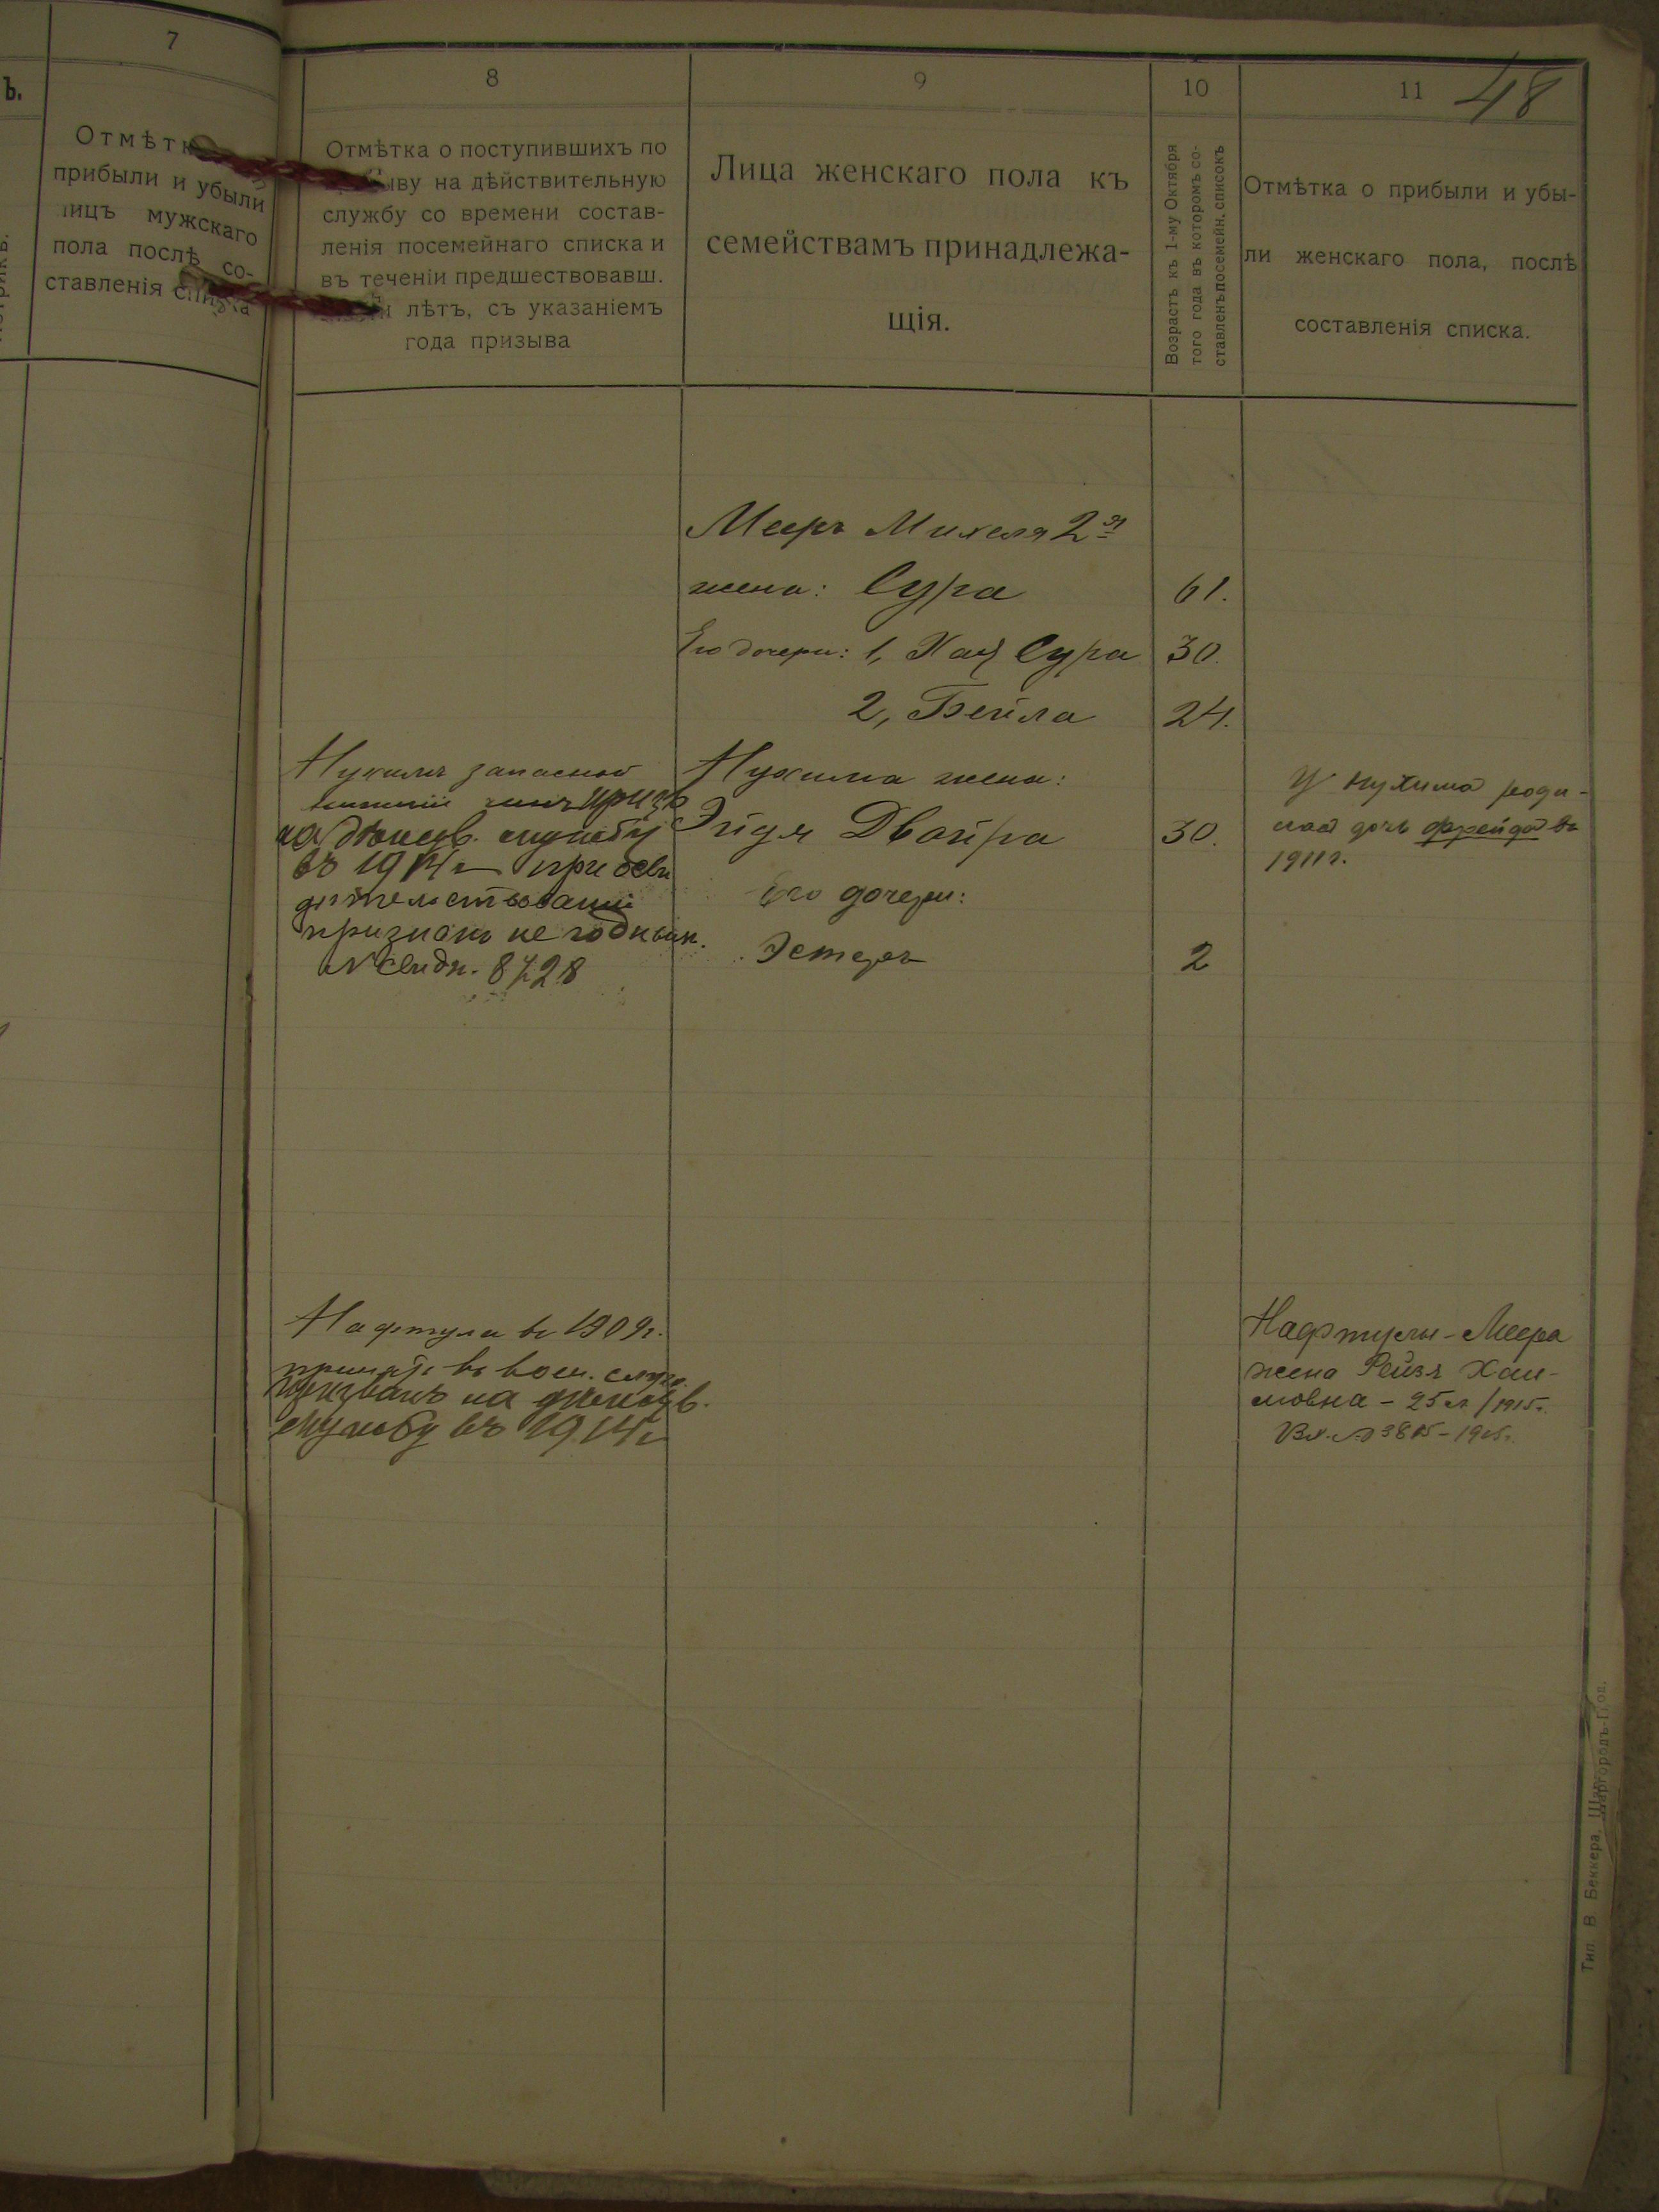 ъ.
7
Отмѣтк
прибыли и убыли
лицъ мужскаго
пола послѣ со-
ставленія списка
8
Отмѣтка о поступившихъ по
ыву на дѣйствительную
службу со времени состав-
ленія посемейнаго списка и
въ теченіи предшествовавш.
лѣтъ, съ указаніемъ
года призыва
9
Лица женскаго пола къ
семействамъ принадлежа-
щія.
10
Возрастъ къ 1-му Октября
того года въ которомъ со-
ставленъ посемейн. списокъ
11
48
Отмѣтка о прибыли и убы-
ли женскаго пола, послѣ
составленія списка.
Мееръ Михеля 2я
жена: Сура 61.
Его дочери: 1, Хая Сура 30.
2, Бейла 24.
Нухима жена:
Эйдя Двойра 30.
Его дочери:
Эстеръ 2
Нухимъ запасной
нижній чинъ призв
на дѣйств. службу
въ 1914 г при осви
дѣтельствованіи
признанъ не годнымъ.
№ свид. 8728
У Нухима роди-
лась дочь Фрейда въ
1911 г.
Нафтула въ 1909 г.
принятъ въ воен. служ.
призванъ на дѣйств.
службу въ 1914 г
Нафтулы-Меера
жена Рейзя Хаи-
мовна - 25 л. / 1915 г.
Вх. № 3815 - 1915 г.
Тип. В. Беккера, Шаргородъ-Под.